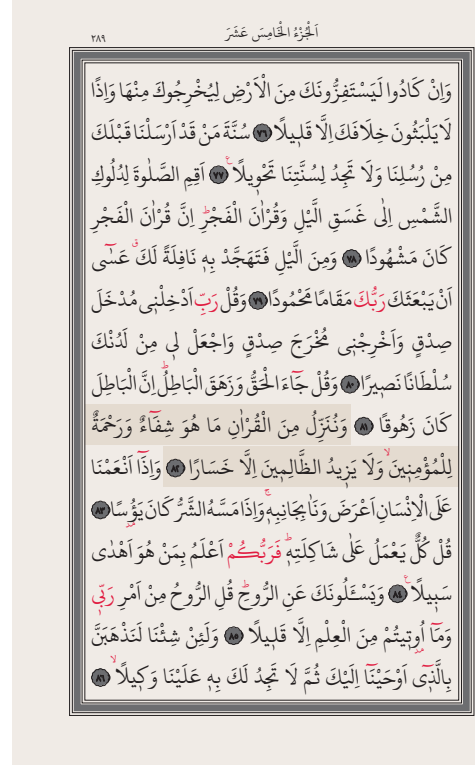 اَلْجُزْءُ الْخَامِسَ عَشَرَ
٢٨٩
وَاِنْ كَادُوا لَيَسْتَفِزُّونَكَ مِنَ الْاَرْضِ لِيُخْرِجُوكَ مِنْهَا وَاِذًا
لَا يَلْبَثُونَ خِلَافَكَ اِلَّا قَلِيلًا ﴿٧٦﴾ سُنَّةَ مَنْ قَدْ اَرْسَلْنَا قَبْلَكَ
مِنْ رُسُلِنَا وَلَا تَجِدُ لِسُنَّتِنَا تَحْوِيلًا ۟ ﴿٧٧﴾ اَقِمِ الصَّلٰوةَ لِدُلُوكِ
الشَّمْسِ اِلٰى غَسَقِ الَّيْلِ وَقُرْاٰنَ الْفَجْرِۜ اِنَّ قُرْاٰنَ الْفَجْرِ
كَانَ مَشْهُودًا ﴿٧٨﴾ وَمِنَ الَّيْلِ فَتَهَجَّدْ بِهٖ نَافِلَةً لَكَۗ عَسٰٓى
اَنْ يَبْعَثَكَ رَبُّكَ مَقَامًا مَحْمُودًا ﴿٧٩﴾ وَقُلْ رَبِّ اَدْخِلْنٖى مُدْخَلَ
صِدْقٍ وَاَخْرِجْنٖى مُخْرَجَ صِدْقٍ وَاجْعَلْ لٖى مِنْ لَدُنْكَ
سُلْطَانًا نَصٖيرًا ﴿٨٠﴾ وَقُلْ جَٓاءَ الْحَقُّ وَزَهَقَ الْبَاطِلُۜ اِنَّ الْبَاطِلَ
كَانَ زَهُوقًا ﴿٨١﴾ وَنُنَزِّلُ مِنَ الْقُرْاٰنِ مَا هُوَ شِفَٓاءٌ وَرَحْمَةٌ
لِلْمُؤْمِنٖينَۙ وَلَا يَزٖيدُ الظَّالِمٖينَ اِلَّا خَسَارًا ﴿٨٢﴾ وَاِذَٓا اَنْعَمْنَا
عَلَى الْاِنْسَانِ اَعْرَضَ وَنَاٰ بِجَانِبِهٖۚ وَاِذَا مَسَّهُ الشَّرُّ كَانَ يَؤُسًا ﴿٨٣﴾
قُلْ كُلٌّ يَعْمَلُ عَلٰى شَاكِلَتِهٖۜ فَرَبُّكُمْ اَعْلَمُ بِمَنْ هُوَ اَهْدٰى
سَبٖيلًا ۟ ﴿٨٤﴾ وَيَسْـَٔلُونَكَ عَنِ الرُّوحِۜ قُلِ الرُّوحُ مِنْ اَمْرِ رَبّٖى
وَمَٓا اُو۫تٖيتُمْ مِنَ الْعِلْمِ اِلَّا قَلٖيلًا ﴿٨٥﴾ وَلَئِنْ شِئْنَا لَنَذْهَبَنَّ
بِالَّذٖٓى اَوْحَيْنَٓا اِلَيْكَ ثُمَّ لَا تَجِدُ لَكَ بِهٖ عَلَيْنَا وَكٖيلًاۙ ﴿٨٦﴾